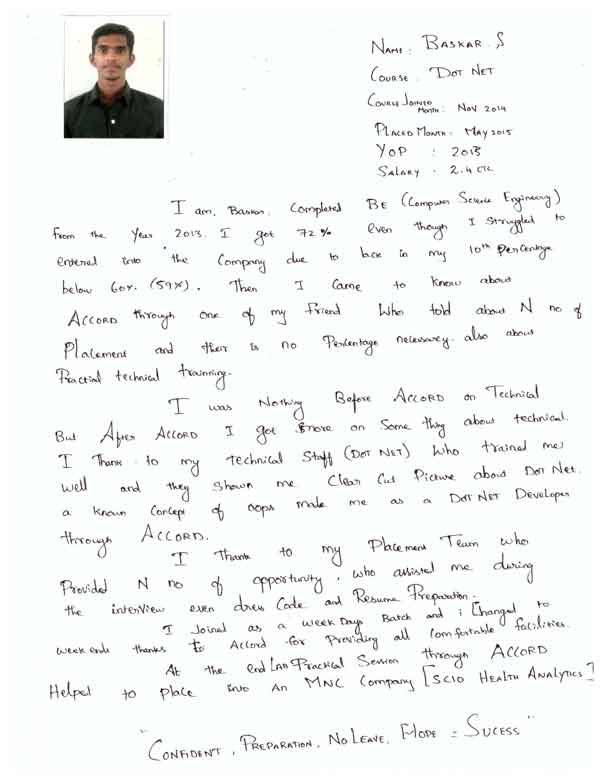 NAME : BASKAR . S
COURSE : DOT NET
COURSE JOINED
MONTH : NOV 2014
PLACED MONTH : MAY 2015
YOP : 2013
SALARY : 2.4 CTC
I am, Baskar, Completed BE (Computer Science Engineering)
from the Year 2013. I got 72% even though I struggled to
entered into the Company due to lack in my 10th Percentage
below 60%. (59%). Then I came to know about
ACCORD through one of my friend who told about N no of
Placement and their is no Percentage necessary. also about
Practial technical trainning.
I was Nothing Before ACCORD on Technical
But After ACCORD I got more on Some thing about technical.
I Thank to my technical Staff (DOT NET) who trained me
well and they shown me Clear Cut Picture about Dot Net.
a known Concept of oops make me as a DOT NET Developer
through ACCORD.
I Thank to my Placement Team who
Provided N no of opportunity . who assisted me during
the interview even dress Code and Resume Preparation.
I Joined as a week Days Batch and i Changed to
week ends thanks to Accord for Providing all Comfortable facilities.
At the end Practical Session through ACCORD
Helpet to place into An MNC Company [SCIO HEALTH ANALYTICS]
"CONFIDENT, PREPARATION, NO LEAVE, HOPE = SUCESS"